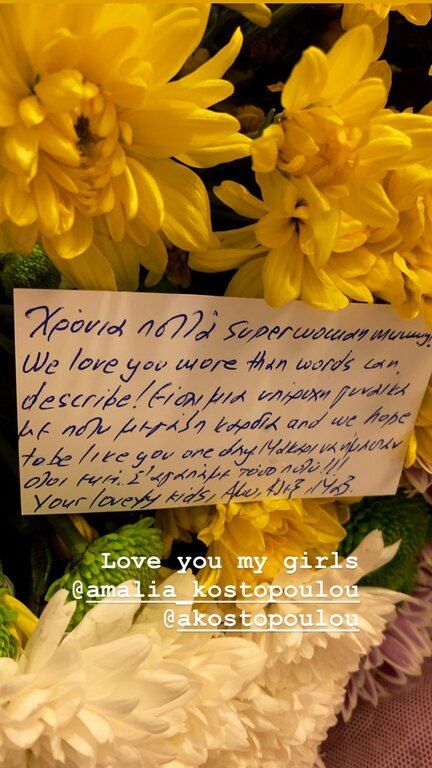 Χρόνια πολλά superwoman mummy!
We love you more than words can
describe! Είσαι μια υπέροχη γυναίκα
με πολύ μεγάλη καρδιά and we hope
to be like you one day! Μακάρι να ήμασταν
όλοι έτσι. Σ'αγαπάμε τόσο πολύ!!!
Your lovely kids,
Love you my girls
@amalia_kostopoulou
@akostopoulou